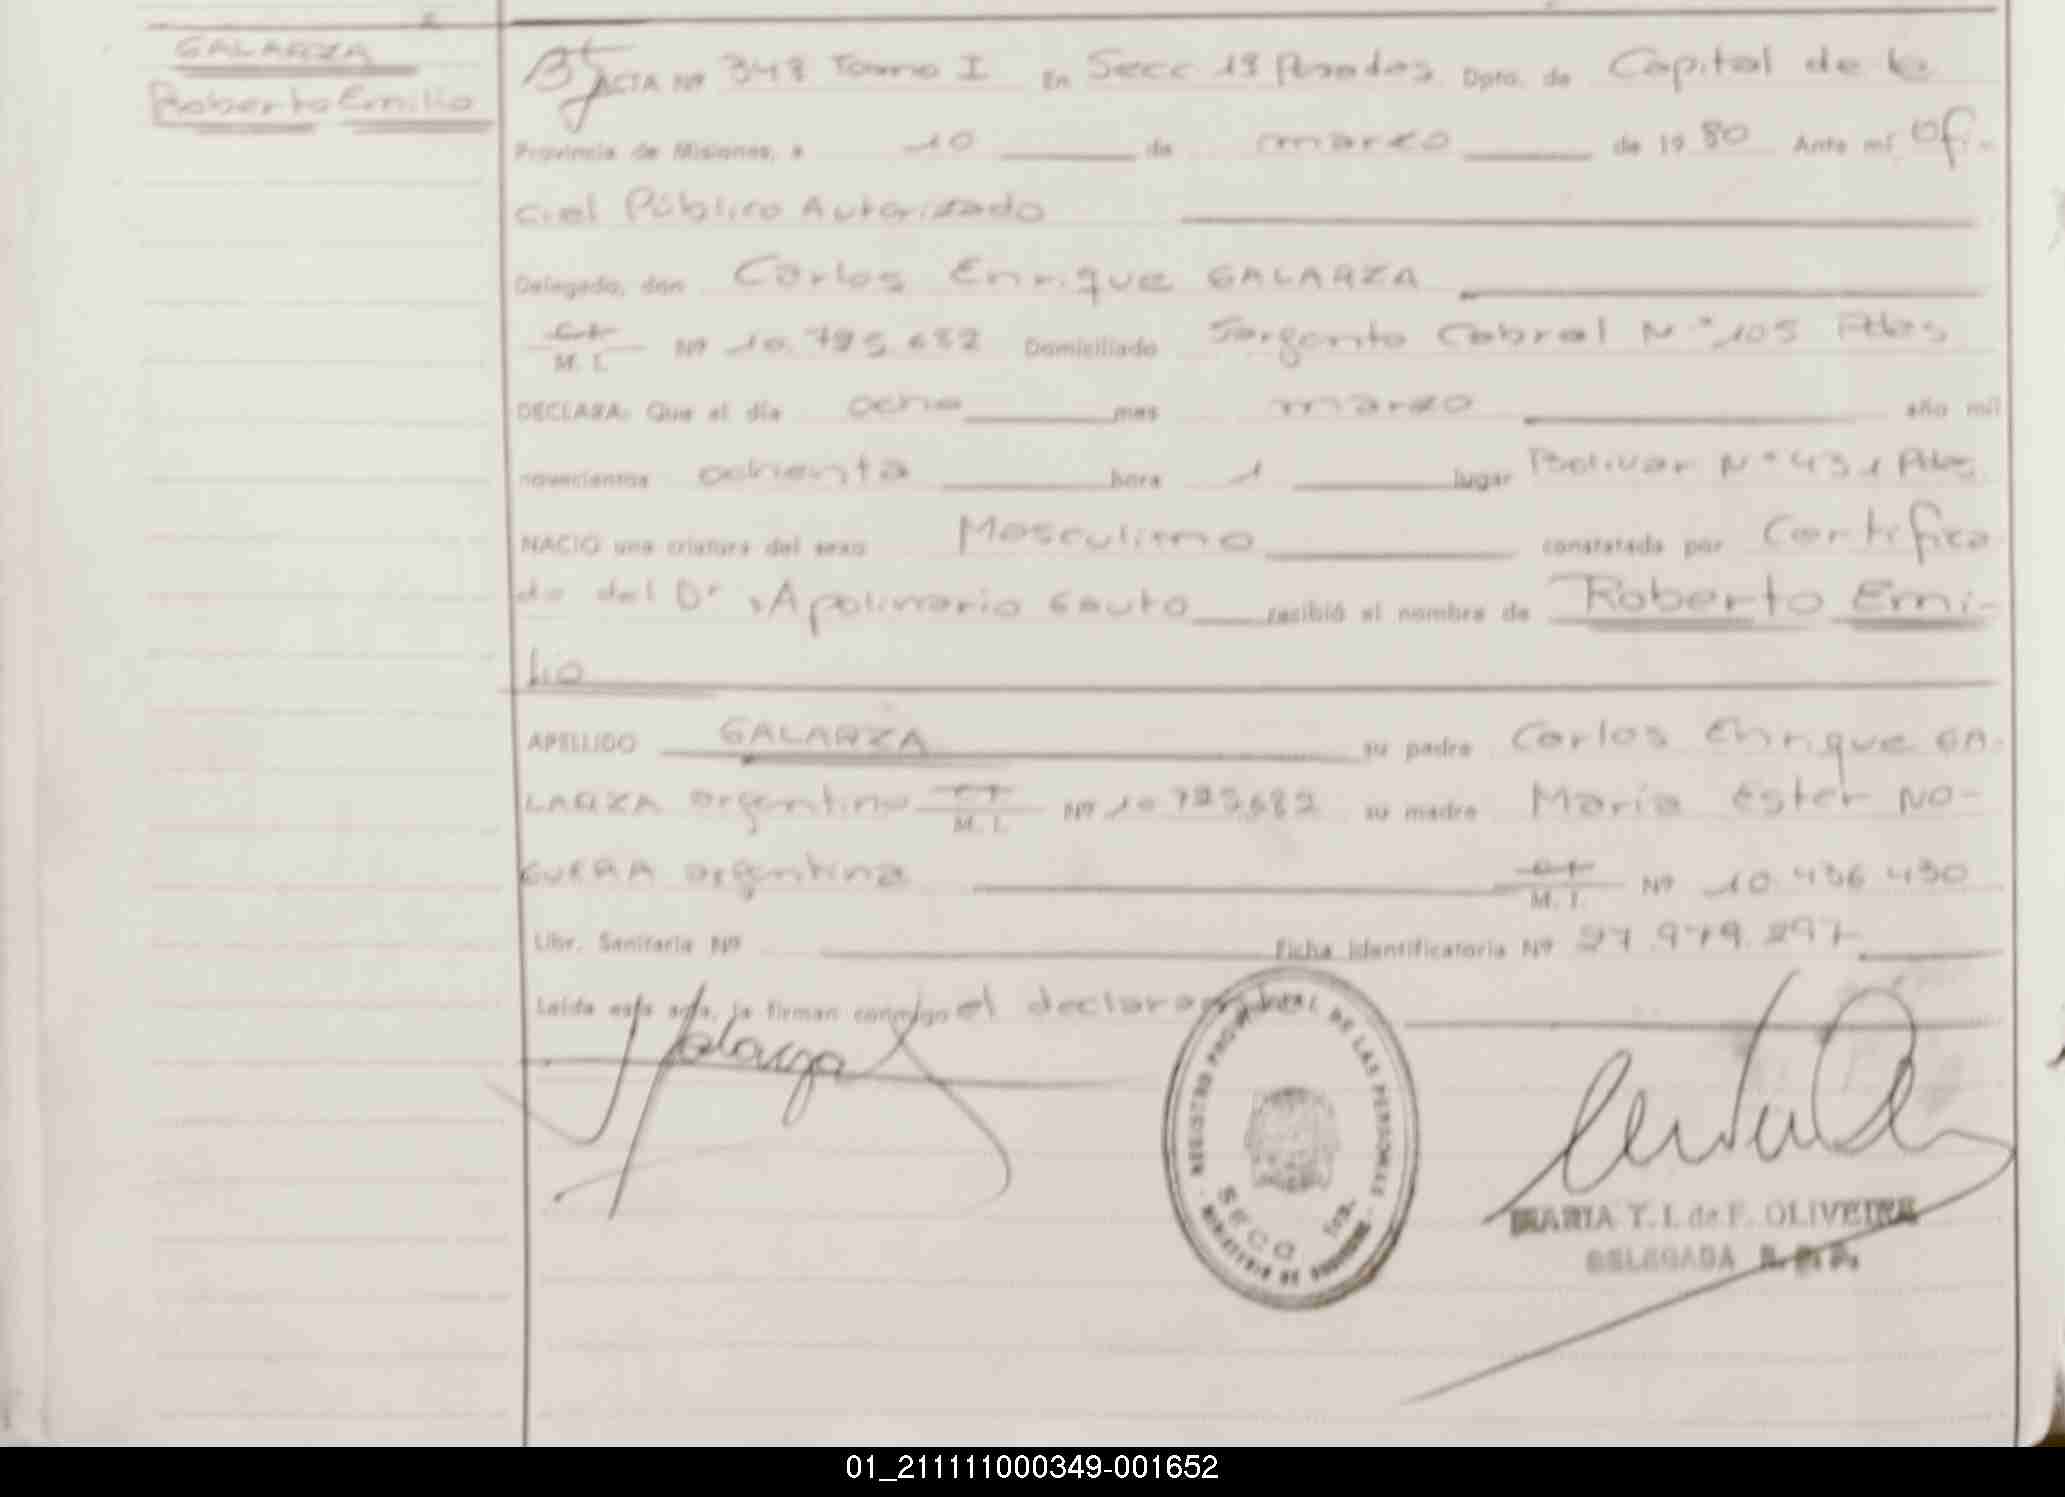 GALARZA
Roberto Emilio
ACTA Nº 348 Tomo I En Secc 1ª Posadas Dpto. de Capital de la
Provincia de Misiones, a 10 de marzo de 1980 Ante mí Ofi-
cial Público Autorizado
Delegado, don Carlos Enrique GALARZA
M. I. Nº 10.795.682 Domiciliado Sargento Cabral Nº 105 Pdas
DECLARA: Que el día ocho mes marzo año mil
novecientos ochenta hora 1 lugar Bolivar Nº 431 Pdas
NACIO una criatura del sexo Masculino constatada por Certifica
do del Dr. Apolinario Gauto recibió el nombre de Roberto Emi-
lio
APELLIDO GALARZA su padre Carlos Enrique GA-
LARZA argentino M. I. Nº 10.795.682 su madre María Ester NO-
GUERA argentina M. I. Nº 10.436.430
Libr. Sanitaria Nº Ficha Identificatoria Nº 27.979.297
Leída esta acta, la firman conmigo el declarante
Galarza
REGISTRO PROVINCIAL DE LAS PERSONAS
SECC. 1ª
MINISTERIO DE GOBIERNO
MARIA T. I. de F. OLIVEIRA
DELEGADA R. P. P.
01_211111000349-001652